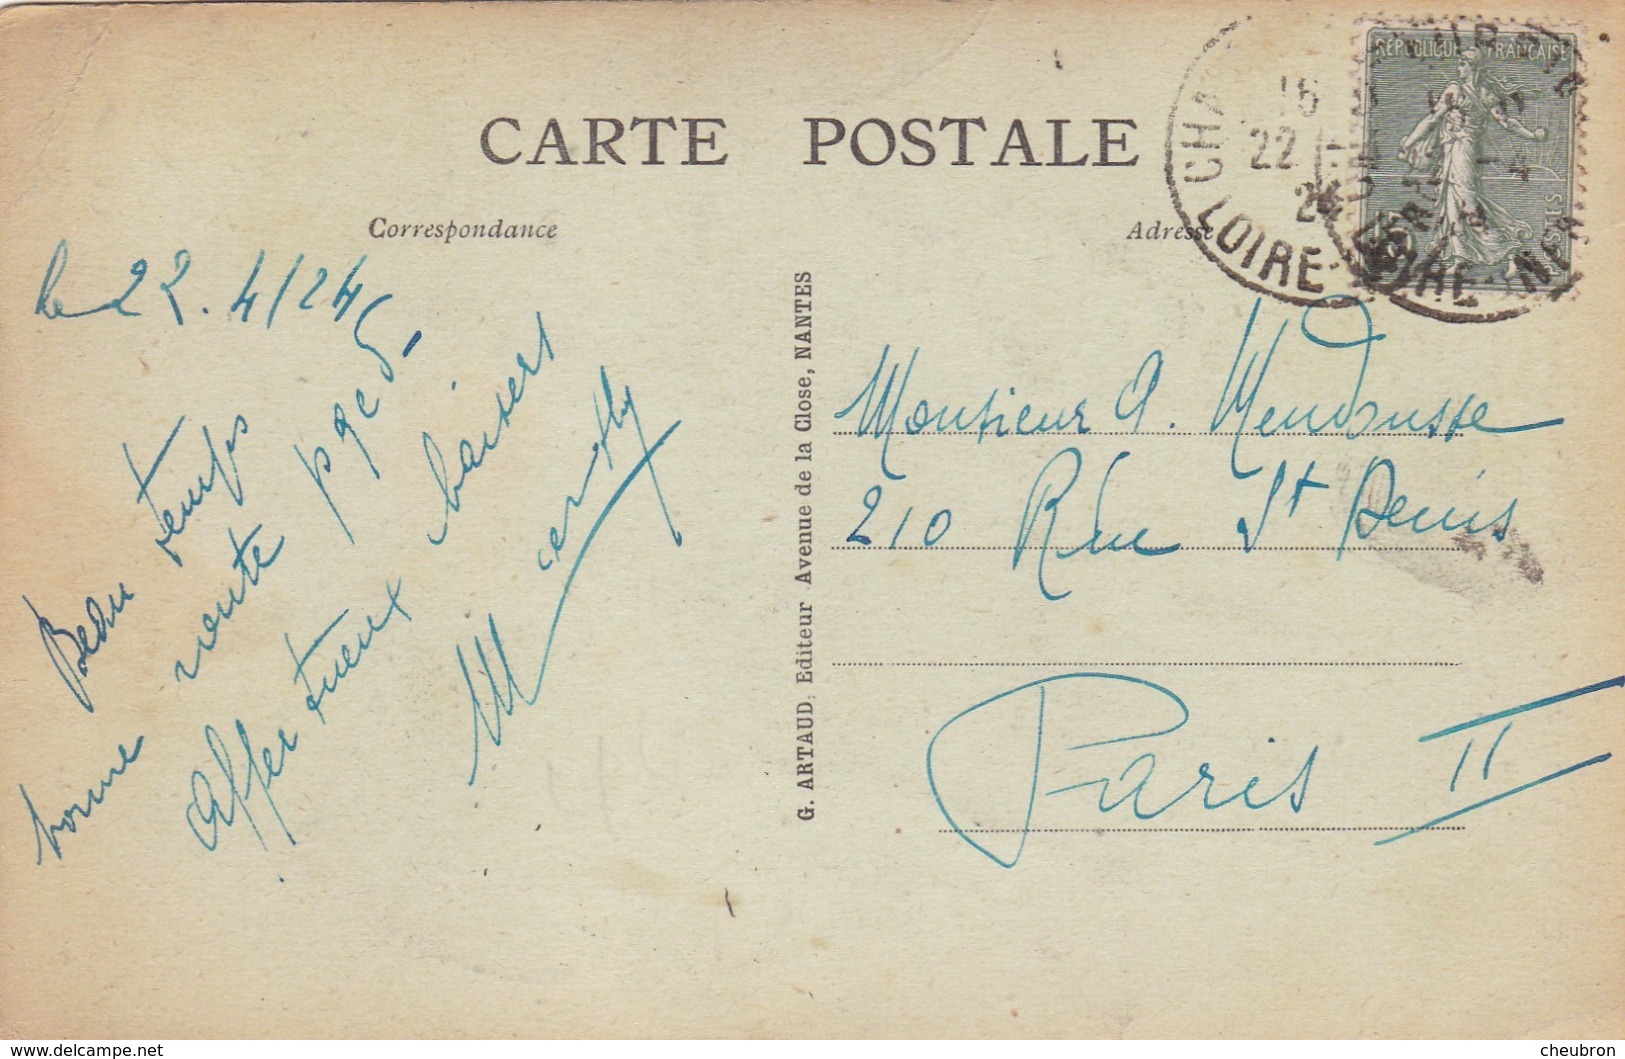 CARTE POSTALE
Correspondance
Adresse
RÉPUBLIQUE FRANÇAISE
POSTES
CHA
16
22
24
LOIRE
le 22.4/24
Beau temps
bonne route
Affectueux baisers
G. ARTAUD, Editeur Avenue de la Close, NANTES
Monsieur A. Mendousse
210 Rue St Denis
Paris II
www.delcampe.net
cheubron